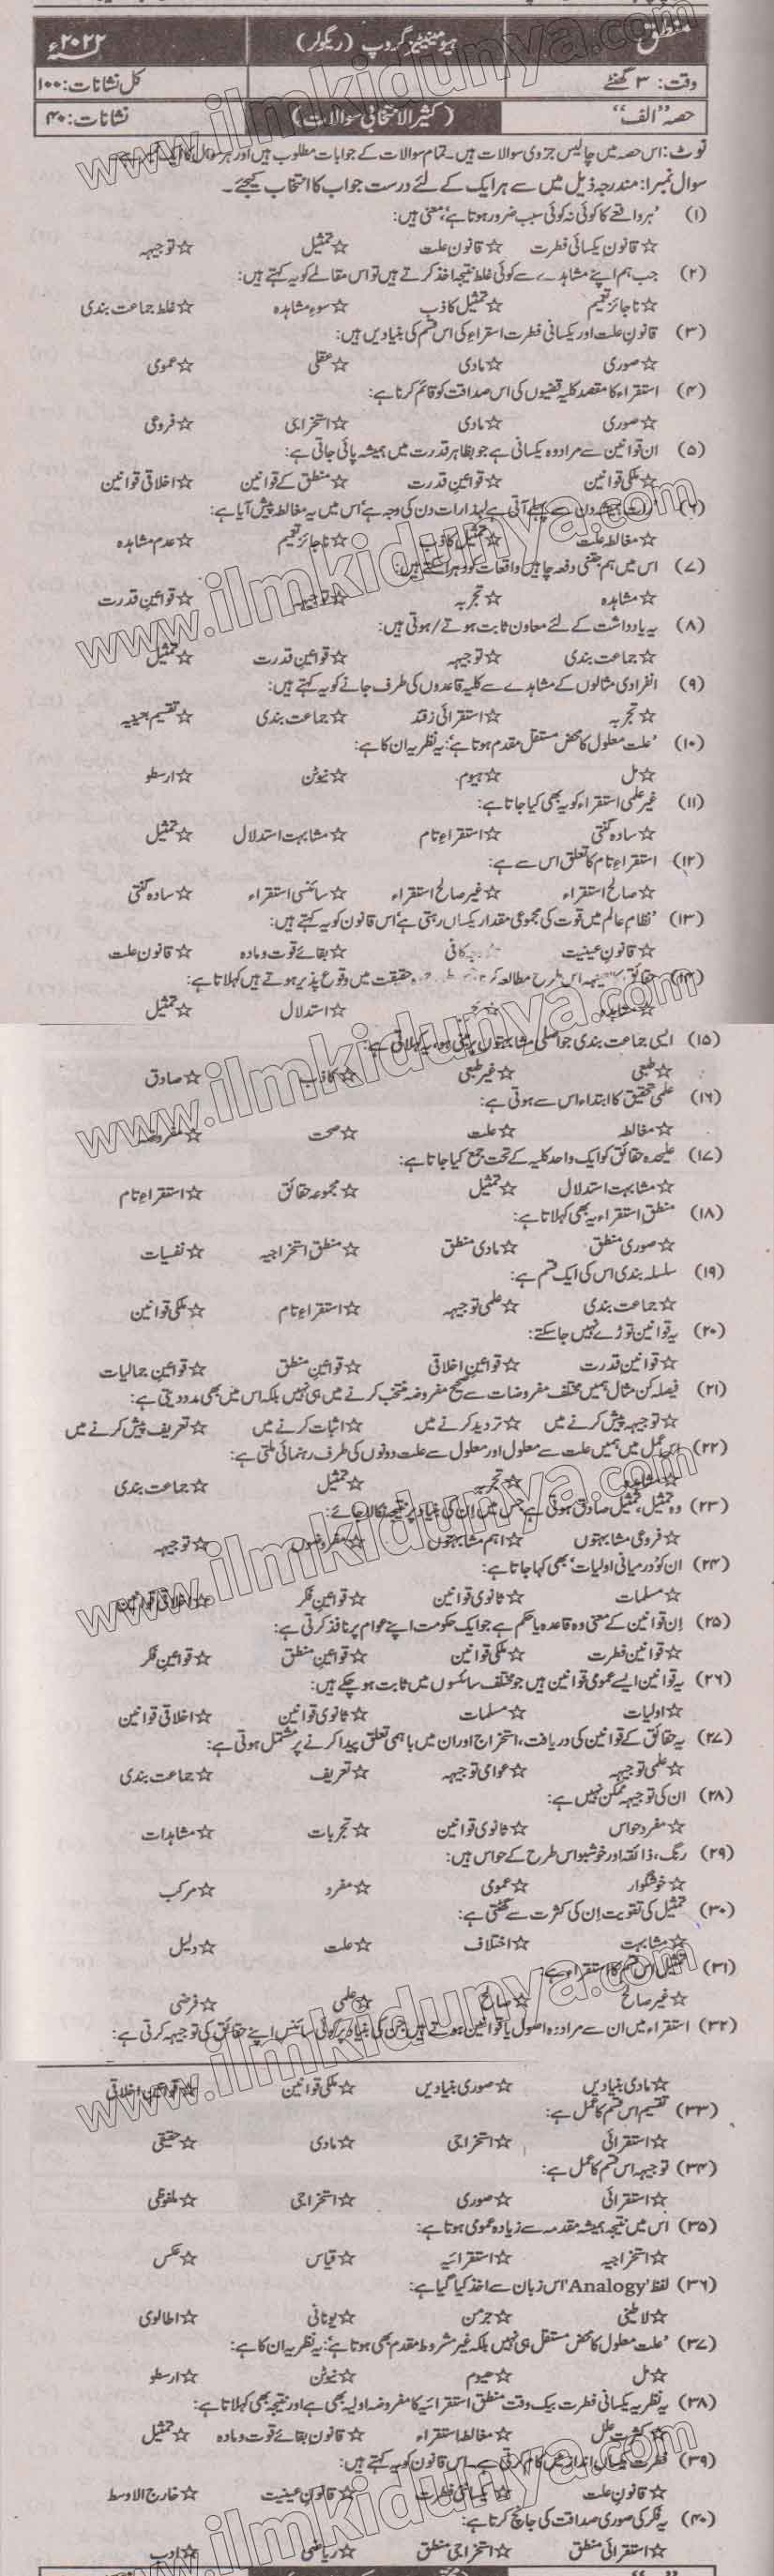 منطق ہیومینٹیز گروپ (ریگولر) ۲۰۲۲ء
وقت: ۳ گھنٹے کل نشانات: ۱۰۰
حصہ "الف" (کثیر الانتخابی سوالات) نشانات: ۴۰
نوٹ: اس حصہ میں چالیس جزوی سوالات ہیں۔ تمام سوالات کے جوابات مطلوب ہیں اور ہر سوال کا ایک
سوال نمبر۱: مندرجہ ذیل میں سے ہر ایک کے لئے درست جواب کا انتخاب کیجئے۔
(۱) 'ہر واقعے کا کوئی نہ کوئی سبب ضرور ہوتا ہے' معنی ہیں:
☆ قانون یکسانی فطرت ☆ قانون علت ☆ تمثیل ☆ توجیہہ
(۲) جب ہم اپنے مشاہدے سے کوئی غلط نتیجہ اخذ کرتے ہیں تو اس مغالطے کو یہ کہتے ہیں:
☆ ناجائز تعمیم ☆ تمثیل کاذب ☆ سوءِ مشاہدہ ☆ غلط جماعت بندی
(۳) قانون علت اور یکسانی فطرت استقراء کی اس قسم کی بنیادیں ہیں:
☆ صوری ☆ مادی ☆ عقلی ☆ عمومی
(۴) استقراء کا مقصد کلیہ قضیوں کی اس صداقت کو قائم کرنا ہے:
☆ صوری ☆ مادی ☆ استخراجی ☆ فروعی
(۵) ان قوانین سے مراد وہ یکسانی ہے جو بظاہر قدرت میں ہمیشہ پائی جاتی ہے:
☆ ملکی قوانین ☆ قوانین قدرت ☆ منطق کے قوانین ☆ اخلاقی قوانین
(۶) 'رات ہمیشہ دن سے پہلے آتی ہے لہذا رات دن کی وجہ ہے' اس میں یہ مغالطہ پیش آیا ہے:
☆ مغالطہ علت ☆ تمثیل کاذب ☆ ناجائز تعمیم ☆ عدم مشاہدہ
(۷) اس میں ہم جتنی دفعہ چاہیں واقعات کو دہرا سکتے ہیں:
☆ مشاہدہ ☆ تجربہ ☆ توجیہہ ☆ قوانین قدرت
(۸) یہ یادداشت کے لئے معاون ثابت ہوتے/ہوتی ہیں:
☆ جماعت بندی ☆ توجیہہ ☆ قوانین قدرت ☆ تمثیل
(۹) انفرادی مثالوں کے مشاہدے سے کلیہ قاعدوں کی طرف جانے کو یہ کہتے ہیں:
☆ تجربہ ☆ استقرائی زقند ☆ جماعت بندی ☆ تقسیم
(۱۰) 'علت معلول کا محض مستقل مقدم ہوتا ہے' یہ نظریہ ان کا ہے:
☆ مل ☆ ہیوم ☆ نیوٹن ☆ ارسطو
(۱۱) غیر علمی استقراء کو یہ بھی کہا جاتا ہے:
☆ سادہ گنتی ☆ استقراءِ تام ☆ مشابہت استدلال ☆ تمثیل
(۱۲) استقراءِ تام کا تعلق اس سے ہے:
☆ صالح استقراء ☆ غیر صالح استقراء ☆ سائنسی استقراء ☆ سادہ گنتی
(۱۳) 'نظام عالم میں قوت کی مجموعی مقدار یکساں رہتی ہے' اس قانون کو یہ کہتے ہیں:
☆ قانون عینیت ☆ وجہ کافی ☆ بقائے قوت و مادہ ☆ قانون علت
(۱۴) حقائق کا بعینہ اس طرح مطالعہ کرنا جس طرح وہ حقیقت میں وقوع پذیر ہوتے ہیں کہلاتا ہے:
☆ مشاہدہ ☆ تجربہ ☆ استدلال ☆ تمثیل
(۱۵) ایسی جماعت بندی جو اصلی مشابہتوں پر مبنی ہو، یہ کہلاتی ہے:
☆ طبعی ☆ غیر طبعی ☆ کاذب ☆ صادق
(۱۶) علمی تحقیق کا ابتداء اس سے ہوتی ہے:
☆ مغالطہ ☆ علت ☆ صحت ☆ مفروضہ
(۱۷) علیحدہ حقائق کو ایک واحد کلیہ کے تحت جمع کیا جاتا ہے:
☆ مشابہت استدلال ☆ تمثیل ☆ مجموعہ حقائق ☆ استقراءِ تام
(۱۸) منطق استقراء یہ بھی کہلاتا ہے:
☆ صوری منطق ☆ مادی منطق ☆ منطق استخراجیہ ☆ نفسیات
(۱۹) سلسلہ بندی اس کی ایک قسم ہے:
☆ جماعت بندی ☆ علمی توجیہہ ☆ استقراءِ تام ☆ ملکی قوانین
(۲۰) یہ قوانین توڑے نہیں جا سکتے:
☆ قوانین قدرت ☆ قوانین اخلاقی ☆ قوانین منطق ☆ قوانین جمالیات
(۲۱) فیصلہ کن مثال ہمیں مختلف مفروضات سے صحیح مفروضہ منتخب کرنے میں ہی نہیں بلکہ اس میں بھی مدد دیتی ہے:
☆ توجیہہ پیش کرنے میں ☆ تردید کرنے میں ☆ اثبات کرنے میں ☆ تعریف پیش کرنے میں
(۲۲) اس عمل میں ہمیں علت سے معلول اور معلول سے علت دونوں کی طرف رہنمائی ملتی ہے:
☆ مشاہدہ ☆ تجربہ ☆ تمثیل ☆ جماعت بندی
(۲۳) وہ تمثیل، تمثیل صادق ہوتی ہے جس میں ان کی بنیاد پر نتیجہ نکالا جائے:
☆ فروعی مشابہتوں ☆ اہم مشابہتوں ☆ مفروضوں ☆ توجیہہ
(۲۴) ان کو 'درمیانی اولیات' بھی کہا جاتا ہے:
☆ مسلمات ☆ ثانوی قوانین ☆ قوانین فکر ☆ اخلاقی قوانین
(۲۵) ان قوانین کے معنی وہ قاعدہ یا حکم ہے جو ایک حکومت اپنے عوام پر نافذ کرتی ہے:
☆ قوانین فطرت ☆ ملکی قوانین ☆ قوانین منطق ☆ قوانین فکر
(۲۶) یہ قوانین ایسے عمومی قوانین ہیں جو مختلف سائنسوں میں ثابت ہو چکے ہیں:
☆ اولیات ☆ مسلمات ☆ ثانوی قوانین ☆ اخلاقی قوانین
(۲۷) یہ حقائق کے قوانین کی دریافت، استخراج اور ان میں باہمی تعلق پیدا کرنے پر مشتمل ہوتی ہے:
☆ علمی توجیہہ ☆ عوامی توجیہہ ☆ تعریف ☆ جماعت بندی
(۲۸) ان کی توجیہہ ممکن نہیں ہے:
☆ مفرد حواس ☆ ثانوی قوانین ☆ تجربات ☆ مشاہدات
(۲۹) رنگ، ذائقہ اور خوشبو اس طرح کے حواس ہیں:
☆ خوشگوار ☆ عمومی ☆ مفرد ☆ مرکب
(۳۰) تمثیل کی تقویت ان کی کثرت سے گھٹتی ہے:
☆ مشابہت ☆ اختلاف ☆ علت ☆ دلیل
(۳۱) تمثیل اس قسم کا استقراء ہے:
☆ غیر صالح ☆ صالح ☆ علمی ☆ فرضی
(۳۲) استقراء میں ان سے مراد وہ اصول یا قوانین ہوتے ہیں جن کی بنیاد پر کوئی سائنس اپنے حقائق کی توجیہہ کرتی ہے:
☆ مادی بنیادیں ☆ صوری بنیادیں ☆ ملکی قوانین ☆ قوانین اخلاقی
(۳۳) تقسیم اس قسم کا عمل ہے:
☆ استقرائی ☆ استخراجی ☆ مادی ☆ حقیقی
(۳۴) توجیہہ اس قسم کا عمل ہے:
☆ استقرائی ☆ صوری ☆ استخراجی ☆ ملفوظی
(۳۵) اس میں نتیجہ ہمیشہ مقدمہ سے زیادہ عمومی ہوتا ہے:
☆ استخراجیہ ☆ استقرائیہ ☆ قیاس ☆ عکس
(۳۶) لفظ 'Analogy' اس زبان سے اخذ کیا گیا ہے:
☆ لاطینی ☆ جرمن ☆ یونانی ☆ اطالوی
(۳۷) 'علت معلول کا محض مستقل ہی نہیں بلکہ غیر مشروط مقدم بھی ہوتا ہے' یہ نظریہ ان کا ہے:
☆ مل ☆ ھیوم ☆ نیوٹن ☆ ارسطو
(۳۸) یہ نظریہ یکسانی فطرت بیک وقت منطق استقرائیہ کا مفروضہ اولیہ بھی ہے اور نتیجہ بھی کہلاتا ہے:
☆ کثرت علل ☆ مغالطہ استقراء ☆ قانون بقائے قوت و مادہ ☆ تمثیل
(۳۹) فطرت یکساں انداز میں کام کرتی ہے۔ اس قانون کو یہ کہتے ہیں:
☆ قانون علت ☆ یکسانی فطرت ☆ قانون عینیت ☆ خارج الاوسط
(۴۰) یہ فکر کی صوری صداقت کی جانچ کرتا ہے:
☆ استقرائی منطق ☆ استخراجی منطق ☆ ریاضی ☆ ادب
www.ilmkidunya.com
www.ilmkidunya.com
www.ilmkidunya.com
www.ilmkidunya.com
www.ilmkidunya.com
www.ilmkidunya.com